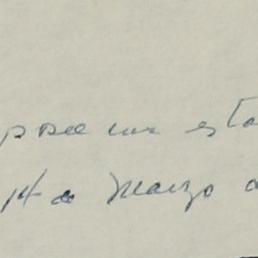 posee una esta
14 de Marzo d